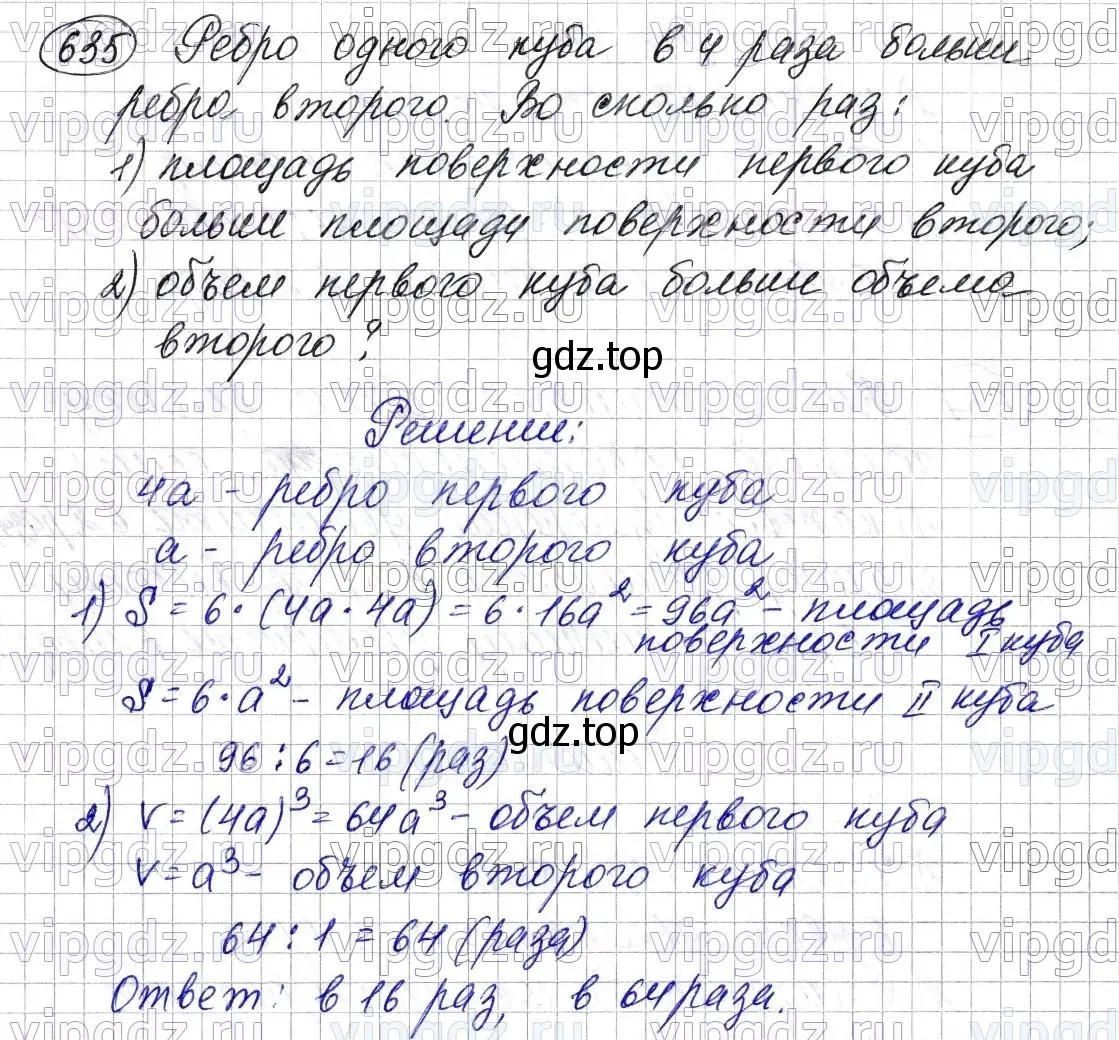 635 Ребро одного куба в 4 раза больше
ребра второго. Во сколько раз:
1) площадь поверхности первого куба
больше площади поверхности второго;
2) объем первого куба больше объема
второго?
gdz.top
Решение:
4a - ребро первого куба
a - ребро второго куба
1) S = 6 · (4a · 4a) = 6 · 16a² = 96a² - площадь
поверхности I куба
S = 6 · a² - площадь поверхности II куба
gdz.top
96 : 6 = 16 (раз)
2) V = (4a)³ = 64a³ - объем первого куба
V = a³ - объем второго куба
64 : 1 = 64 (раза)
Ответ: в 16 раз, в 64 раза.
vipgdz.ru